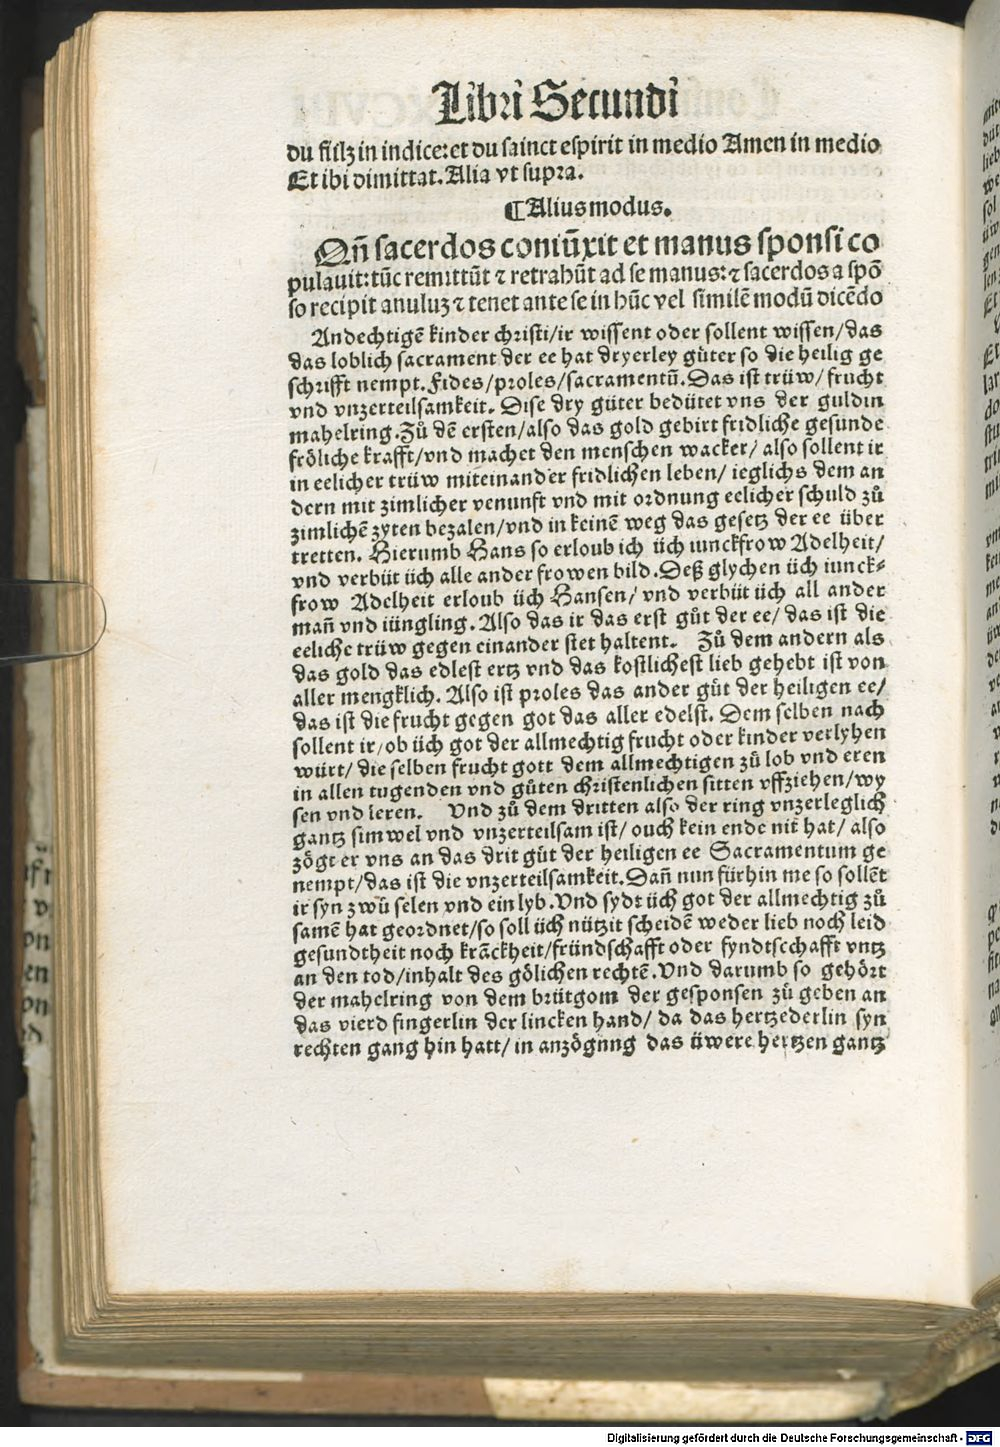 Libri Secundi
du filz in indice:et du sainct espirit in medio Amen in medio
Et ibi dimittat. Alia vt supra.
¶Alius modus.
Qñ sacerdos coniūxit et manus sponsi co
pulauit:tūc remittūt ⁊ retrahūt ad se manus:⁊ sacerdos a spō
so recipit anuluꝫ ⁊ tenet ante se in hūc vel similē modū dicēdo
Andechtigē kinder christi/ir wissent oder sollent wissen/das
das loblich sacrament der ee hat dryerley gůter so die heilig ge
schrifft nempt. Fides/proles/sacramentū. Das ist trüw/frucht
vnd vnzerteilsamkeit. Dise dry güter bedütet vns der guldin
mahelring. Zů dē ersten/also das gold gebirt fridliche gesunde
fröliche krafft/vnd machet den menschen wacker/ also sollent ir
in eelicher trüw miteinander fridlichen leben/ ieglichs dem an
dern mit zimlicher venunft vnd mit ordnung eelicher schuld zů
zimlichē zyten bezalen/vnd in keinē weg das gesetz der ee über
tretten. Hierumb Hans so erloub ich üch iunckfrow Adelheit/
vnd verbüt üch alle ander frowen bild. Deß glychen üch iunck-
frow Adelheit erloub üch Hansen/ vnd verbüt üch all ander
mañ vnd iüngling. Also das ir das erst gůt der ee/ das ist die
eeliche trüw gegen einander stet haltent. Zů dem andern als
das gold das edlest ertz vnd das kostlichest lieb gehebt ist von
aller mengklich. Also ist proles das ander gůt der heiligen ee/
das ist die frucht gegen got das aller edelst. Dem selben nach
sollent ir/ob üch got der allmechtig frucht oder kinder verlyhen
würt/ die selben frucht gott dem allmechtigen zů lob vnd eren
in allen tugenden vnd gůten christenlichen sitten vffziehen/wy
sen vnd leren. Vnd zů dem dritten also der ring vnzerleglich
gantz simwel vnd vnzerteilsam ist/ ouch kein ende nit hat/ also
zögt er vns an das drit gůt der heiligen ee Sacramentum ge
nempt/das ist die vnzerteilsamkeit. Dañ nun fürhin me so sollēt
ir syn zwů selen vnd ein lyb. Vnd sydt üch got der allmechtig zů
samē hat geordnet/so soll üch nützit scheidē weder lieb noch leid
gesundtheit noch krāckheit/fründschafft oder fyndtschafft vntz
an den tod/inhalt des götlichen rechtē. Vnd darumb so gehört
der mahelring von dem brütgom der gesponsen zů geben an
das vierd fingerlin der lincken hand/ da das hertzederlin syn
rechten gang hin hatt/ in anzögnng das üwere hertzen gantz
Digitalisierung gefördert durch die Deutsche Forschungsgemeinschaft - DFG